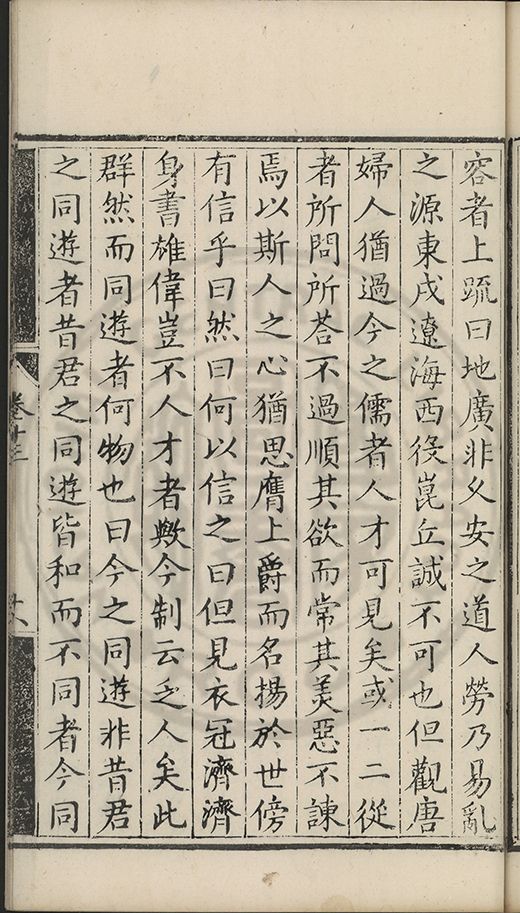 容者上疏曰地廣非久安之道人勞乃易亂
之源東戍遼海西役崑丘誠不可也但觀唐
婦人猶過今之儒者人才可見矣或一二從
者所問所荅不過順其欲而常其羙惡不諫
焉以斯人之心猶思膺上爵而名揚於世傍
有信乎曰然曰何以信之曰但見衣冠濟濟
身書雄偉豈不人才者歟今制云乏人矣此
群然而同遊者何物也曰今之同遊非昔君
之同遊者昔君之同遊皆和而不同者今同
卷十三